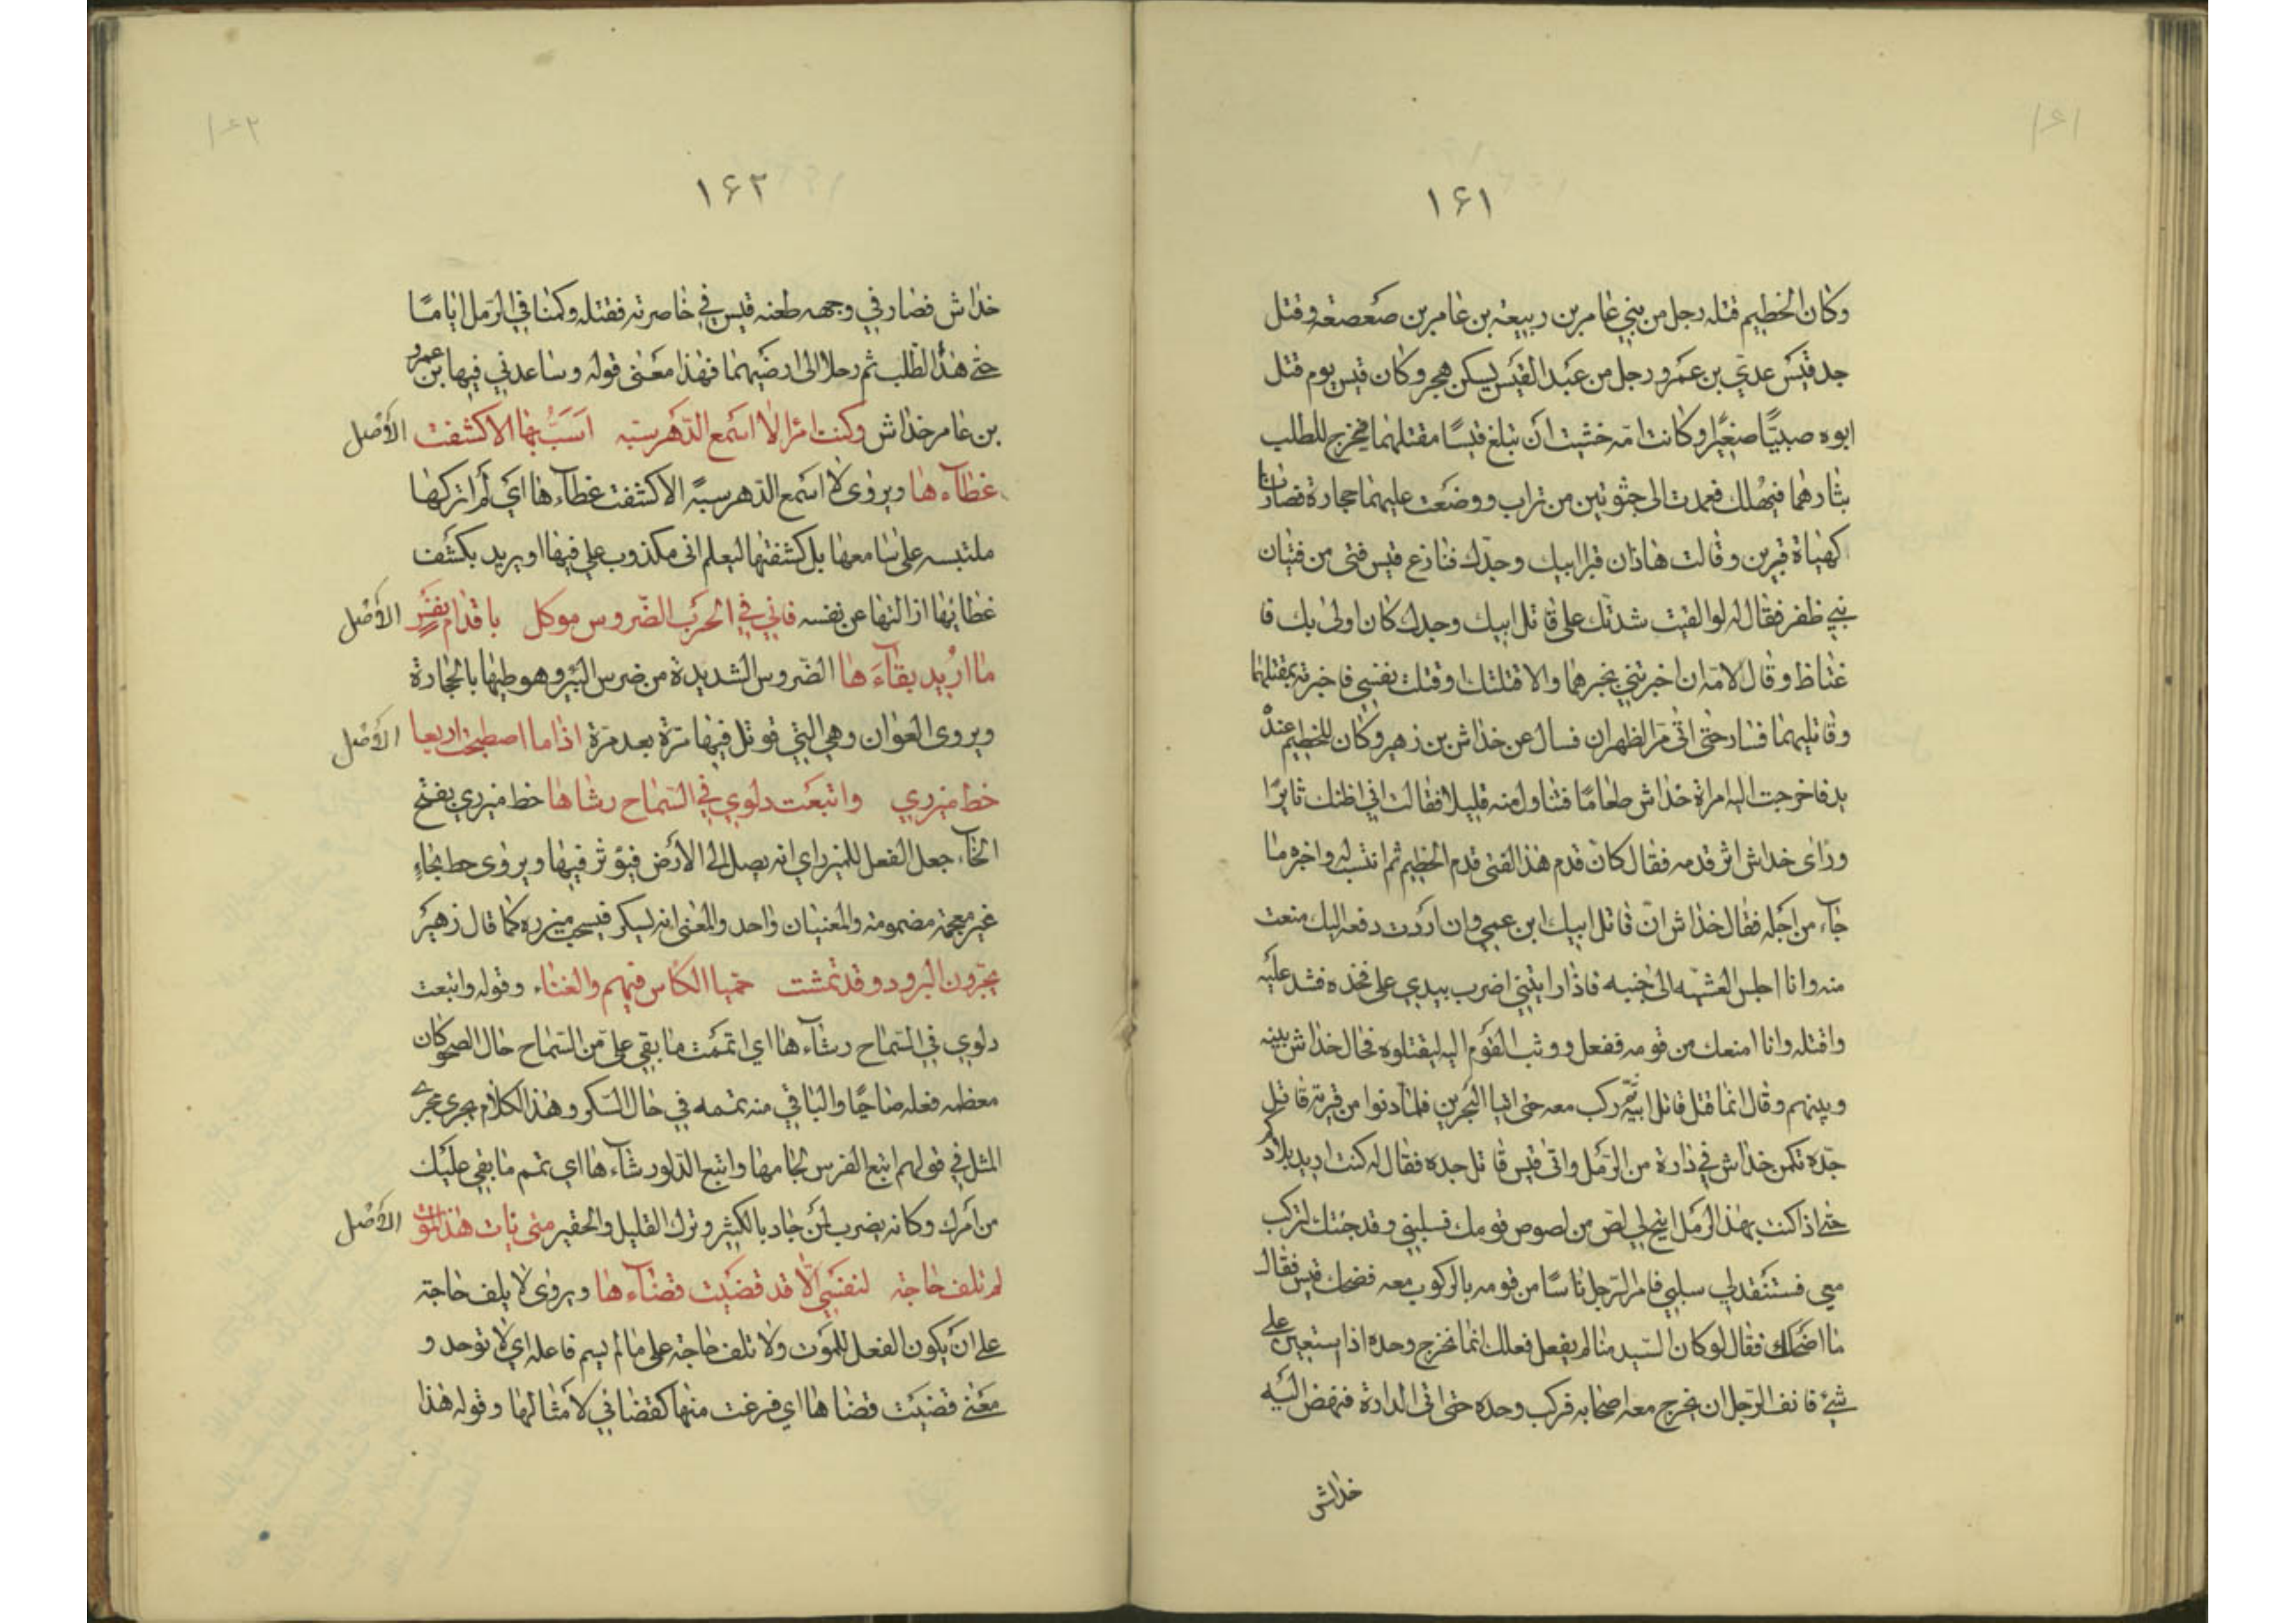 ١٦١
وكان الخطيم قتله رجل من بني عامر بن ربيعة بن عامر بن صعصعة وقتل
جد قيس عدي بن عمرو رجل من عبد القيس يسكن هجر وكان قيس يوم قتل
ابوه صبيًّا صغيرًا وكانت امّه خشيت أن تبلغ قيسًا مقتلهما فيخرج للطلب
بثارهما فيهلك فعمدت الى جثوتين من تراب ووضعت عليهما حجارة فصارتا
كهيأة قبرين وقالت هاذان قبرا ابيك وجدّك فنازع قيس فتى من فتيان
بني ظفر فقال له لو القيت شدتك على قاتل ابيك وجدك كان اولى بك فا
غتاظ وقال لامّه ان اخبرتني بخبرهما والا قتلتك او قتلت نفسي فاخبرته بمقتلهما
وقاتليهما فسار حتى اتى مرّ الظهران فسال عن خداش بن زهير وكان للخطيم عنده
يد فاخرجت اليه امراة خداش طعامًا فتناول منه قليلا فقالت اني اظنك ثايرًا
وراى خداش اثر قدمه فقال كانّ قدم هذا الفتى قدم الخطيم ثم انتسب له واخبره ما
جآء من اجله فقال خداش انّ قاتل ابيك ابن عمي وان اردت دفعه اليك منعت
منه وانا اجلس العشيّه الى جنبه فاذا رايتني اضرب بيدي على فخذه فشد عليه
واقتله وانا امنعك من قومه ففعل ووثب القوم اليه ليقتلوه فحال خداش بينه
وبينهم وقال انما قتل قاتل ابيه ثمّ ركب معه حتى اتيا البحرين فلمّا دنوا من قرية قاتل
جدّه تكمن خداش في دارة من الرّمل واتى قيس قاتل جده فقال له كنت اريد بلادكم
حتى اذا كنت بهذا الرّمل اتيح لي لصّ من لصوص قومك فسلبني وقد جئتك لتركب
معي فستنقذ لي سلبي فامر الرّجل ناسًا من قومه بالركوب معه فضحك قيس فقال
ما اضحكك فقال لو كان السّيد منا لم يفعل فعلك انما نخرج وحده اذا يستعين على
شيء فانف الرّجل ان يخرج معه اصحابه فركب وحده حتى اتى الدارة فنهض اليه
خداش
١٦٢
خداش فصار في وجهه طعنه قيس في خاصرته فقتله وكمنا في الرّمل اياما
حتى هدأ الطّلب ثم رحلا الى ارضيهما فهذا معنى قوله وساعدني فيها بن عمرو
بن عامر خداش وكنت امرًا لا اسمع الدّهر سبه اسبّ بها الا كشفت الأصل
غطآءها ويروى لا اسمع الدّهر سبةً الا كشفت غطآءها اي لم اتركها
ملتبسه على سامعها بل كشفتها ليعلم انى مكذوب علي فيها او يريد بكشف
غطائها ازالتها عن نفسه فاني في الحرب الضّروس موكل باقدام نفس الأصل
ما اريد بقآءها الضّروس الشديدة من ضرس البئر وهو طيها بالحجارة
ويروى العوان وهي التي قوتل فيها مرّة بعد مرّة اذا ما اصطبحت اربعا الأصل
خط ميزري واتبعت دلوي في السّماح رشاها خط ميزري بفتح
الخآء جعل الفعل للميزر اي انه يصل الى الأرض فيؤثر فيها ويروى حط بحاءٍ
غير معجمة مضمومة والمعنيان واحد والمعنى انه ليسكر فيسحب ميزره كما قال زهير
يجرّون البرود وقد تمشت حميا الكاس فيهم والغناء وقوله واتبعت
دلوي في السّماح رشآءها اي اتممت ما بقي على من السّماح حال الصحو كان
معظمه فعله صاحيًا والباقي منه تممه في حال السّكر وهذا الكلام يجرى مجرى
المثل في قولهم اتبع الفرس لجامها واتبع الدّلو رشآءها اي تمم ما بقي عليك
من امرك وكانه يضرب لمن جاد بالكثير وترك القليل والحقير متى يات هذا الموت الأصل
لم تلف حاجة لنفسي الّا قد قضيت قضآءها ويروى لا يلف حاجة
على ان يكون الفعل للموت ولا تلف حاجة على ما لم يسم فاعله اي لا توجد و
معنى قضيت قضاها اي فرغت منها كقضائي لأمثالها وقوله هذا